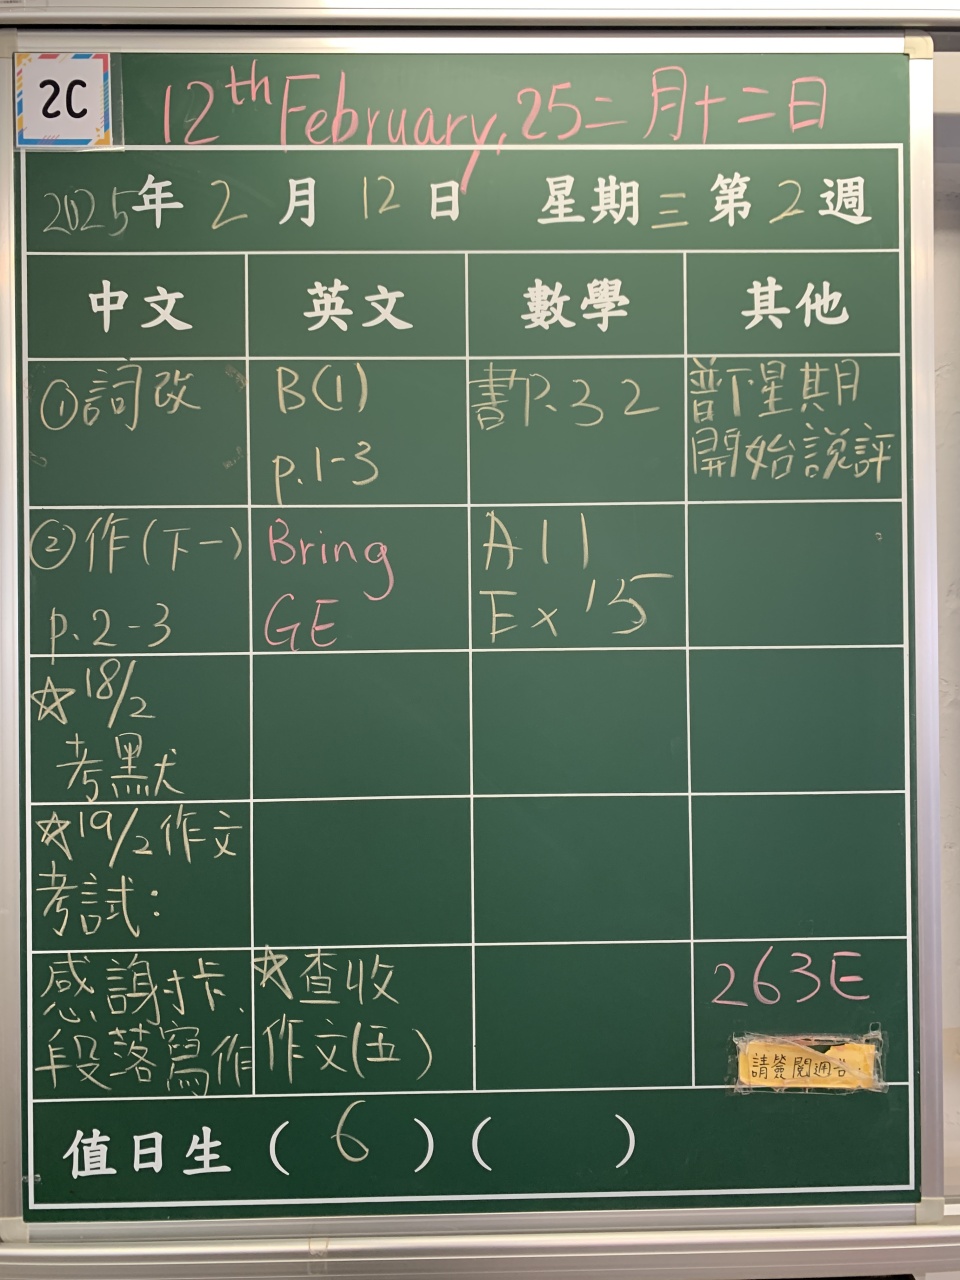 2C
12th February, 25 二月十二日
2025年 2 月 12 日 星期三 第 2 週
中文 英文 數學 其他
①詞改
B(1)
p.1-3
書P.32
普下星期
開始說評
②作(下一)
p.2-3
Bring
GE
A11
Ex 15
☆18/2
考默
☆19/2作文
考試:
感謝卡
段落寫作
☆查收
作文(五)
263E
請簽閱通告
值日生 ( 6 ) ( )